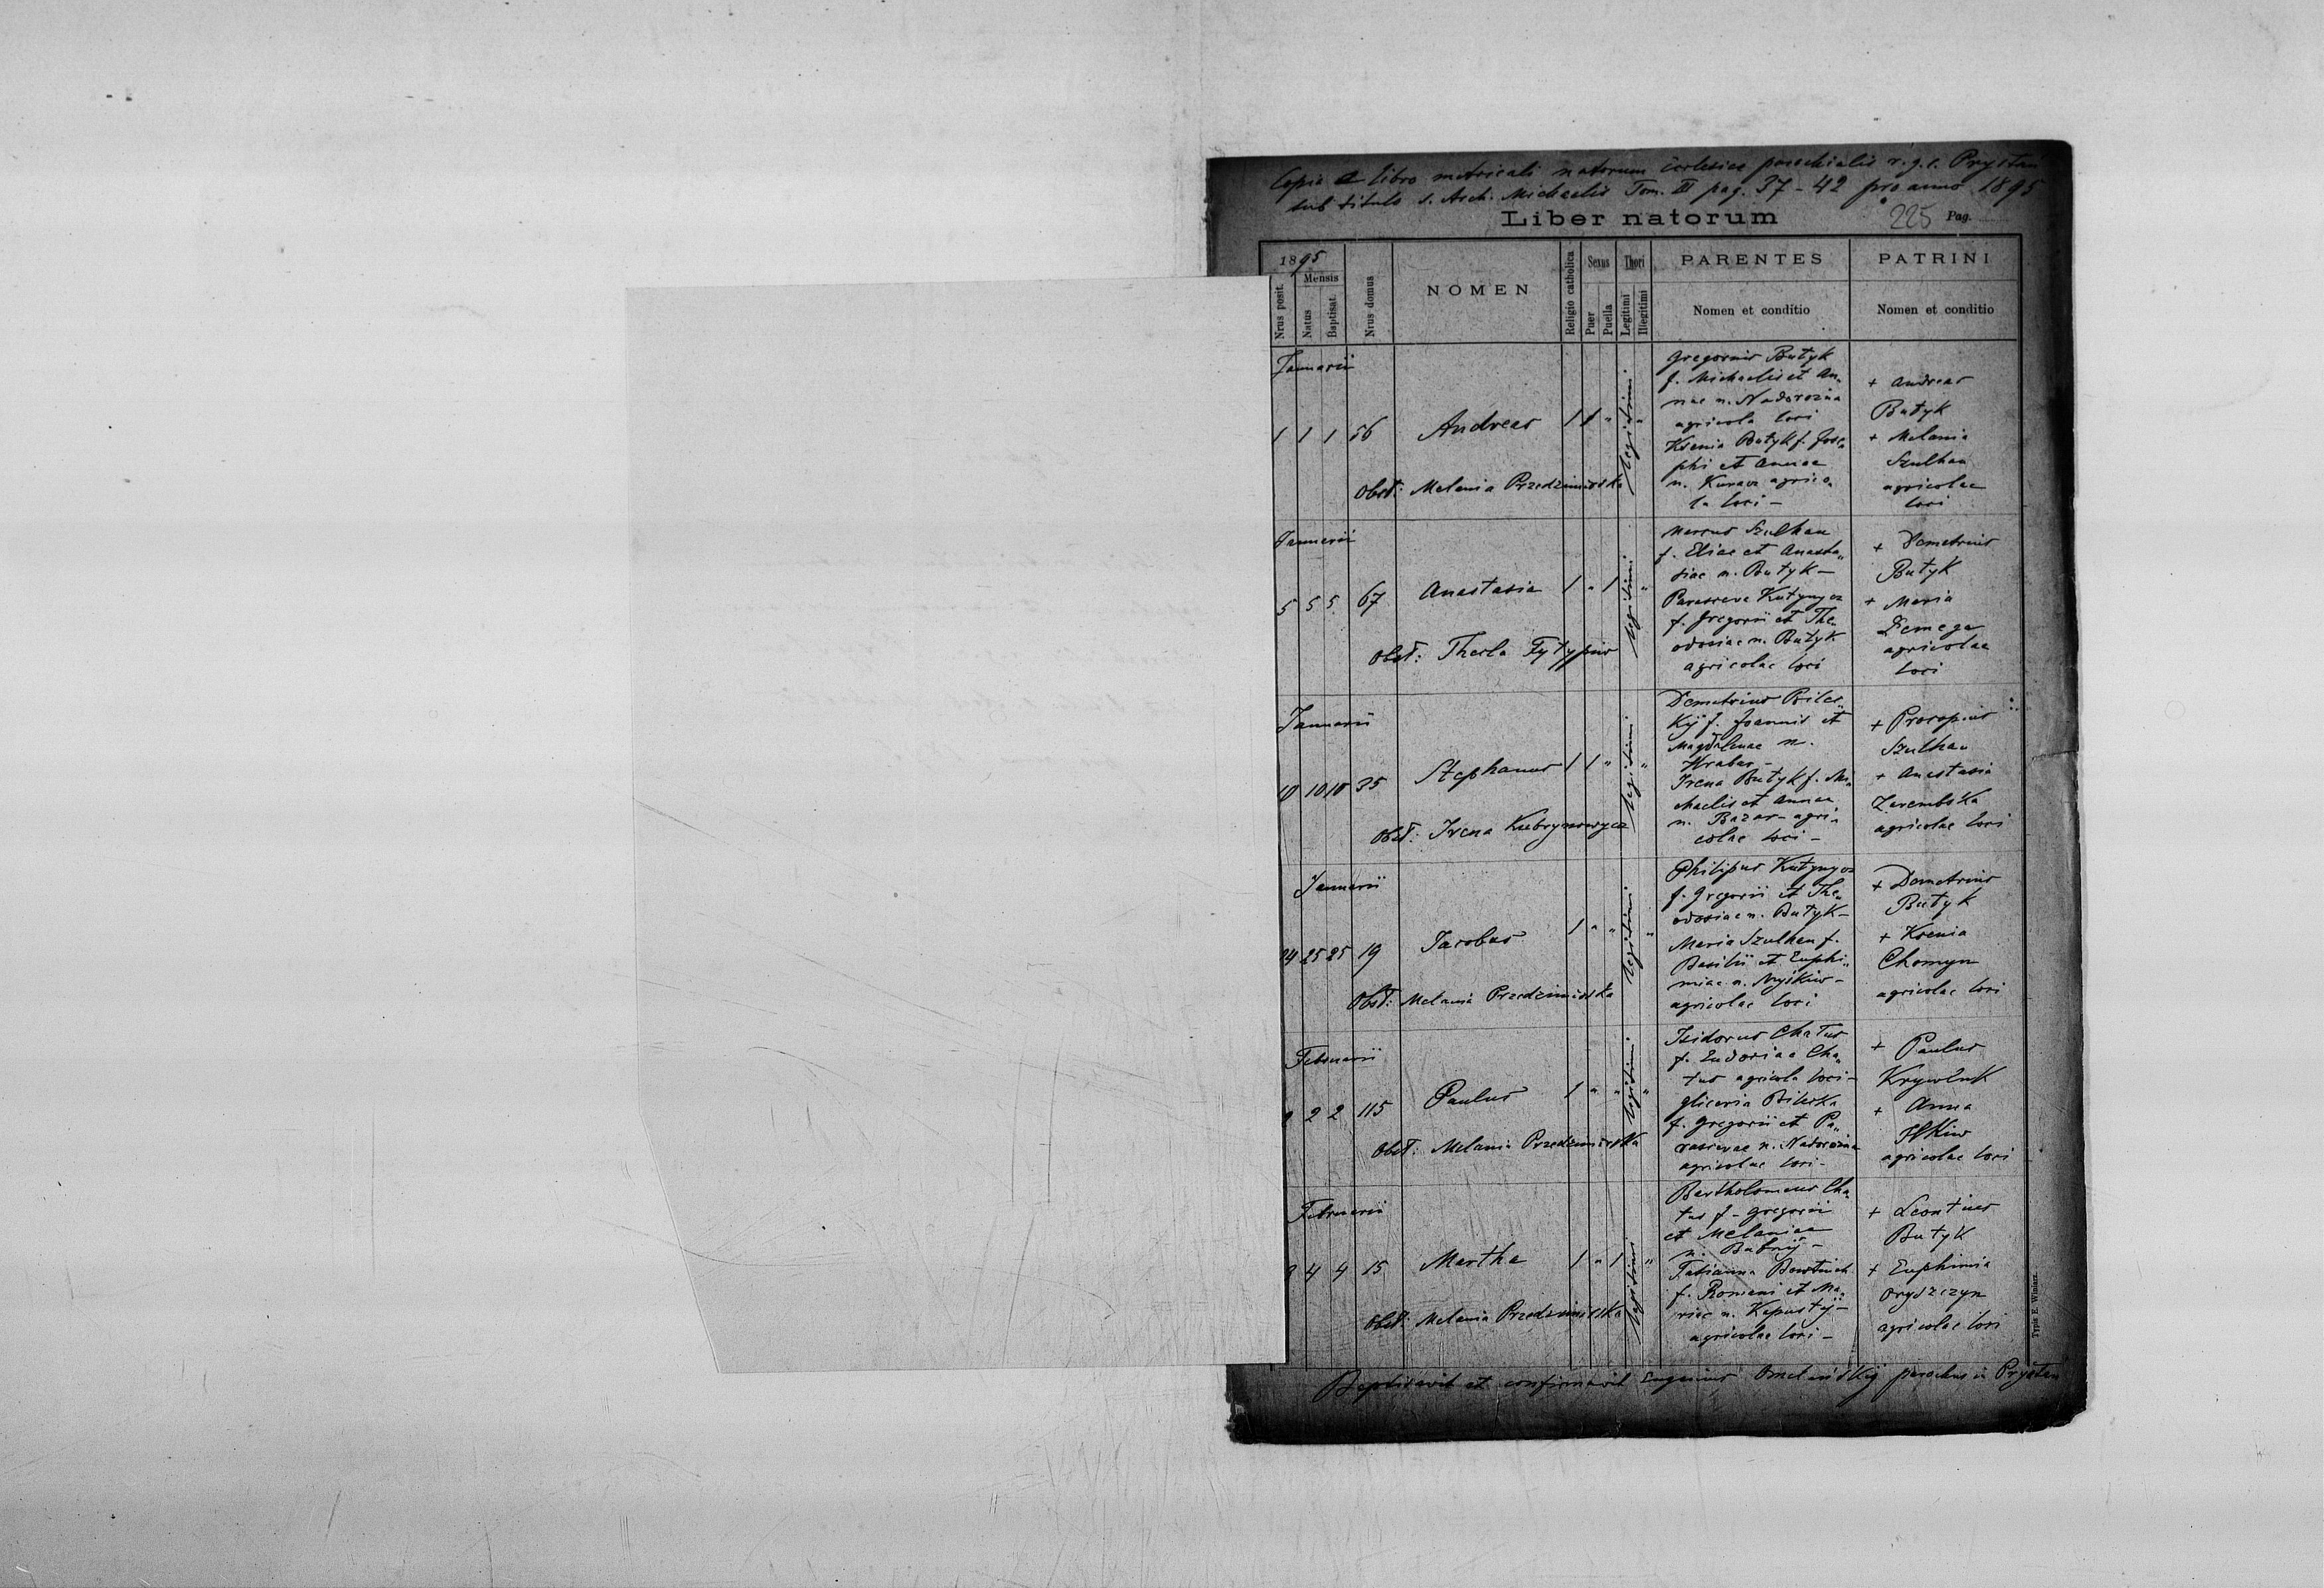 Copia a libro metricali natorum ecclesiae parochialis r. g. c. Prystań
sub titulo s. Arch. Michaelis Tom. III pag. 37 - 42 pro anno 1895
Liber natorum 225 Pag.
1895
Mensis
Nrus posit.
Natus
Baptisat.
Nrus domus
NOMEN
Religio catholica
Sexus
Puer
Puella
Thori
Legitimi
Illegitimi
PARENTES
Nomen et conditio
PATRINI
Nomen et conditio
Januarii
1 1 1 56 Andreas 1 1 " legitimi "
Obst: Melania Przedzimirska
Gregorius Butyk
f. Michaelis et An„
nae n. Nadorozna
agricola loci
Ksenia Butyk f. Jose„
phi et Annae
n. agrico„
la loci -
+ Andreas
Butyk
+ Melania
Szulhan
agricolae
loci
Januarii
5 5 5 67 Anastasia 1 " 1 legitimi "
Obst: Thecla
Marcus Szulhan
f. Eliae et Anasta„
siae n. Butyk -
Parasceva Kutynycz
f. Gregorii et The„
odosiae n. Butyk
agricolae loci
+ Demetrius
Butyk
+ Maria
agricolae
loci
Januarii
10 10 10 35 Stephanus 1 1 " legitimi "
Obst: Irena
Demetrius Biles„
kij f. Joannis et
Magdalenae n.
Hrabar -
Irena Butyk f. Mi„
chaelis et Annae
n. Bazar - agri„
colae loci -
+ Procopius
Szulhan
+ Anastasia
Zarembska
agricolae loci
Januarii
24 25 25 19 Jacobus 1 " " legitimi "
Obst: Melania Przedzimirska
Philipus Kutynycz
f. Gregorii et The„
odosiae n. Butyk -
Maria Szulhan f.
Basilii et Euphi„
miae n.
agricolae loci
+ Demetrius
Butyk
+ Ksenia
Chomyn
agricolae loci
Februarii
2 2 115 Paulus 1 " " legitimi "
Obst: Melania Przedzimirska
Isidorus Chatus
f. Eudociae Cha„
tus agricola loci -
Gliceria Bileska
f. Gregorii et Pa„
rascevae n. Nadorozna
agricolae loci -
+ Paulus
Kryweluk
+ Anna
Ilkiw
agricolae loci
Februarii
3 4 4 15 Martha 1 " 1 legitimi "
Obst: Melania Przedzimirska
Bartholomeus Cha„
tus f - Gregorii
et Melaniae
n. -
Tatianna
f. Romani et Ma„
riae n. Kapustij -
agricolae loci -
+ Leontius
Butyk
+ Euphimia
Oryszczyn
agricolae loci
Baptisavit et confirmavit Eugenius parochus in Prystań
Typis E. Winiarz.